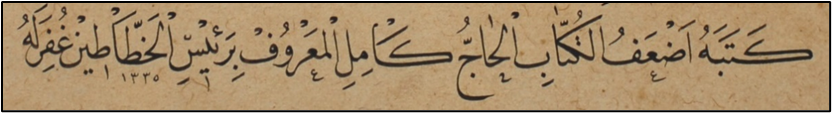 كَتَبَهُ اَضْعَفُ الْكُتَّابِ الْحَاجُّ كَامِلِ الْمَعْرُوفْ بِرَئِيسِ الْخَطَّاطِينْ غُفِرَ لَهُ ١٣٣٥